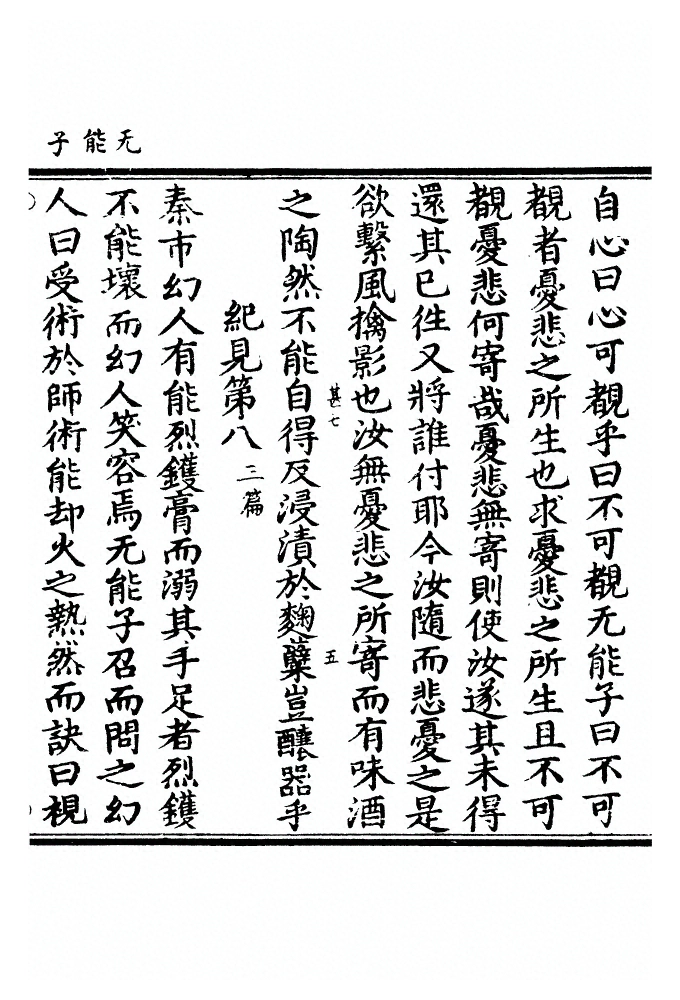 无能子
自心曰心可覩乎曰不可覩无能子曰不可
覩者憂悲之所生也求憂悲之所生且不可
覩憂悲何寄哉憂悲無寄則使汝遂其未得
還其已徃又將誰付耶今汝隨而悲憂之是
欲繫風擒影也汝無憂悲之所寄而有味酒
甚七
五
之陶然不能自得反浸漬於麴糵豈釀器乎
紀見第八三篇
秦市幻人有能烈鑊膏而溺其手足者烈鑊
不能壞而幻人笑容焉无能子召而問之幻
人曰受術於師術能却火之熱然而訣曰視